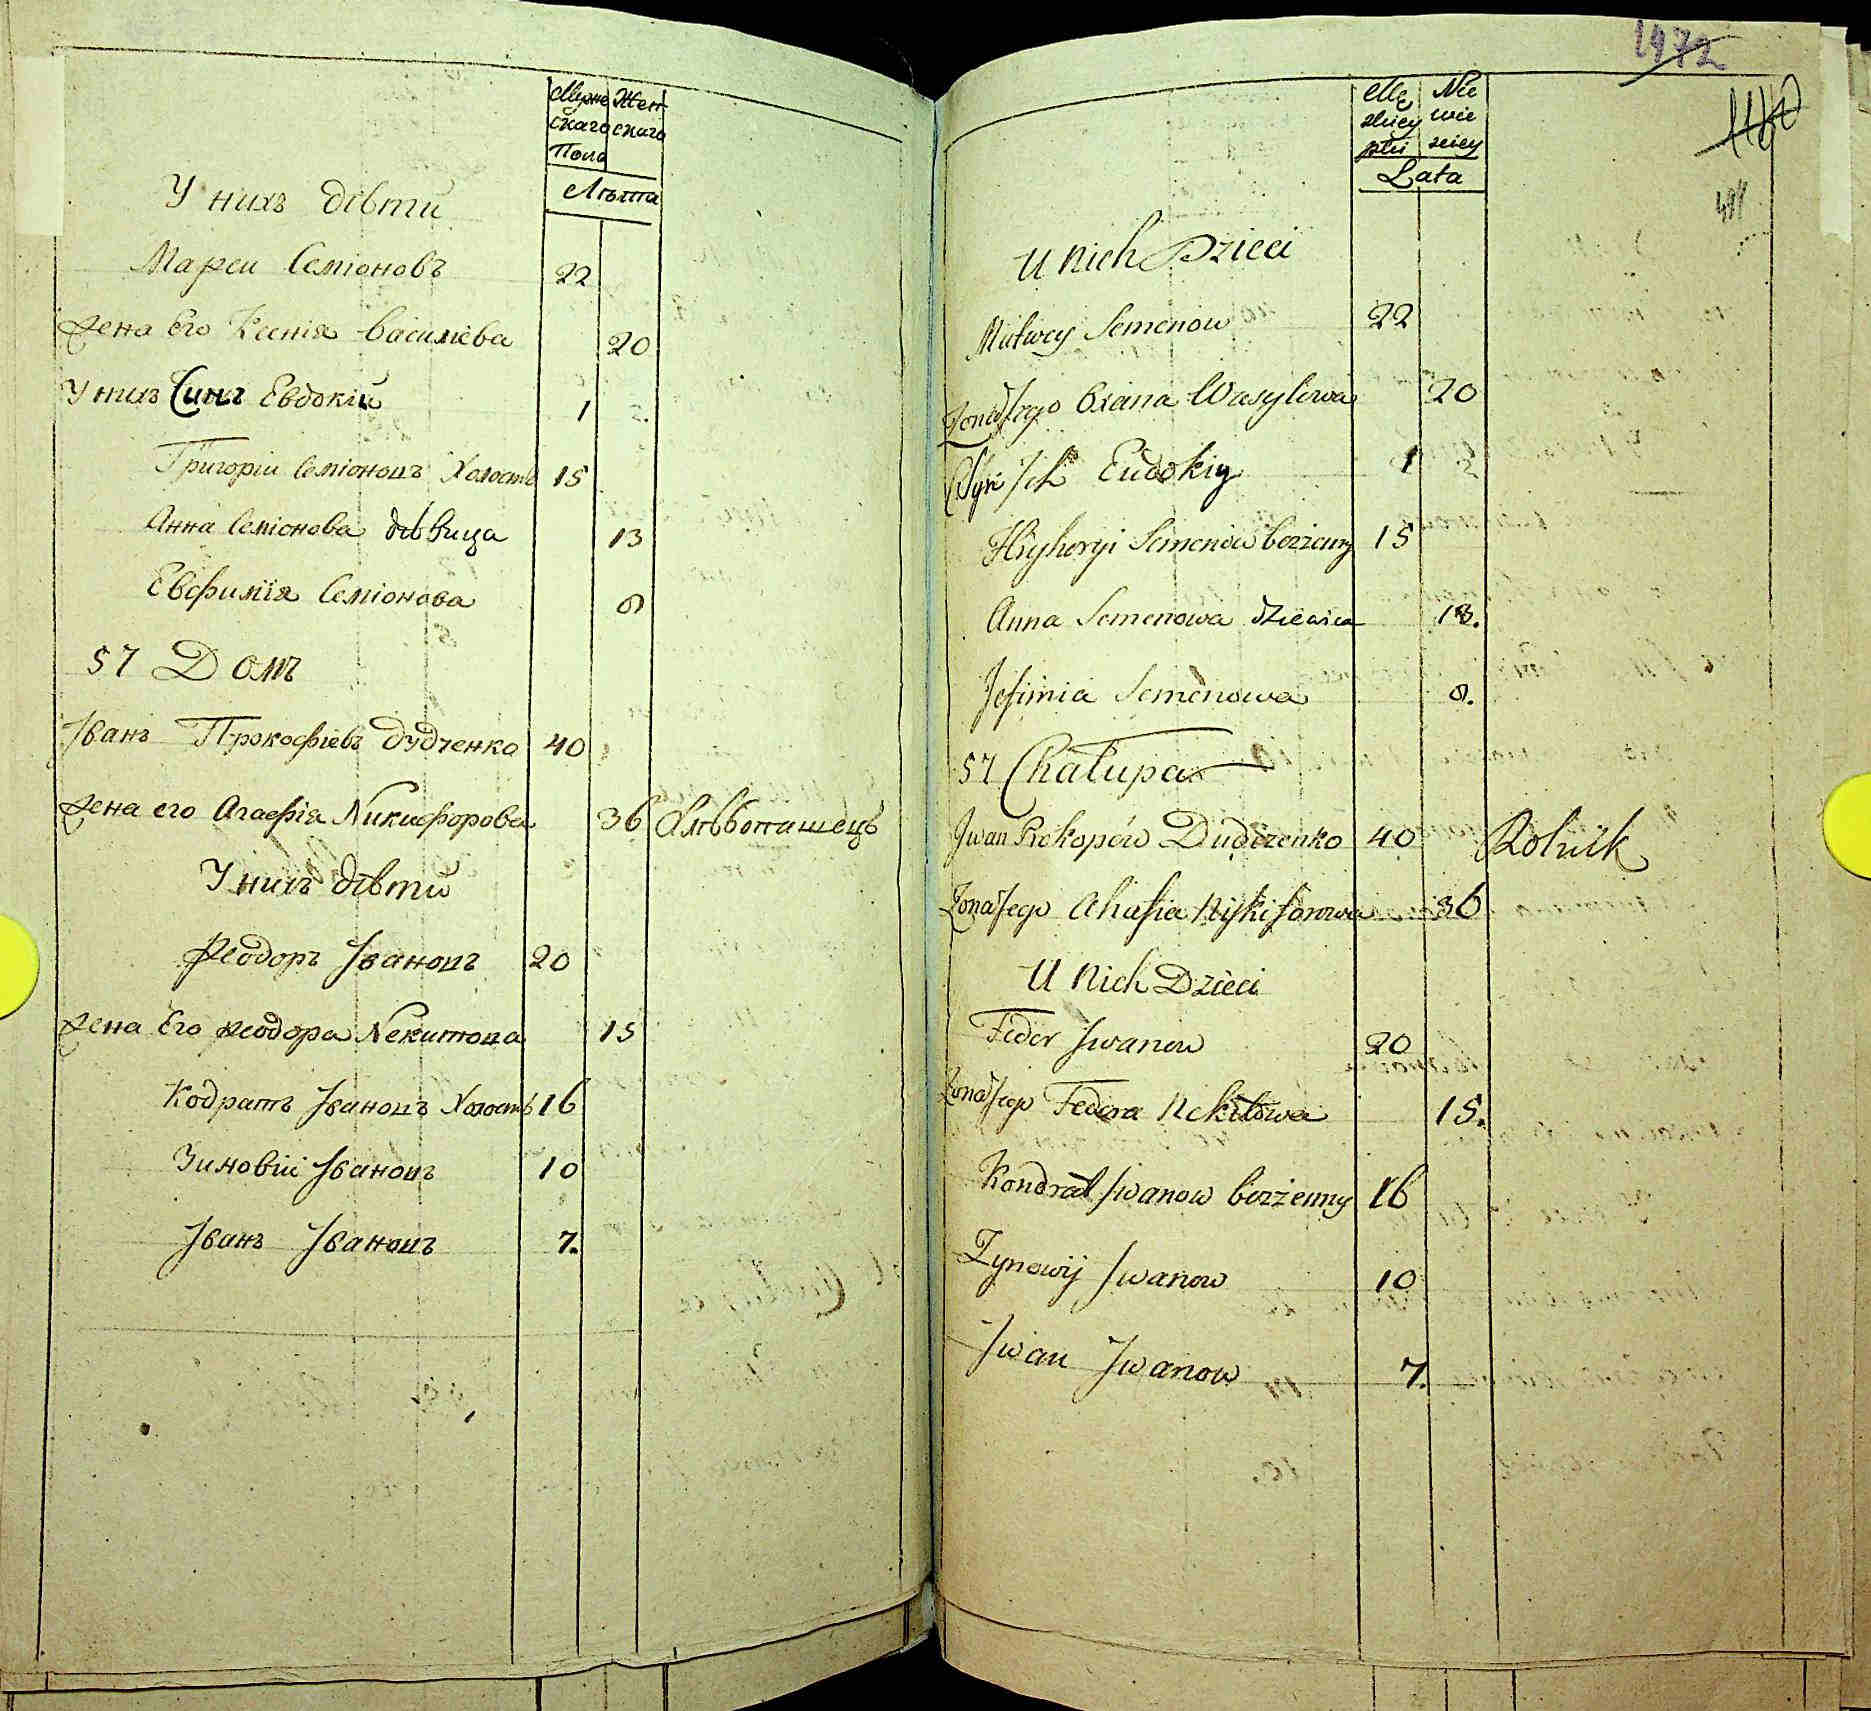 Мужескаго Пола
Женскаго
Лѣта
У нихъ дѣти
Мареи Семіоновъ 22
Жена Его Ксенія Василіева 20
У нихъ Синъ Евдокій 1
Григоріи Семіоновъ Холостъ 15
Анна Семіонова дѣвица 13
Евфимія Семіонова 8
57 Домъ
Іванъ Прокофіевъ Дудченко 40
Жена его Агафія Никифорова 36 Хлѣбопашецъ
У нихъ дѣти
Феодоръ Івановъ 20
Жена Его Феодора Некитова 15
Кодратъ Івановъ Холостъ 16
Зиновій Івановъ 10
Іванъ Івановъ 7.
1472
Lata
U nich Dzieci
Matwey Semenow 22
Zona Jego Oxana Wasylowa 20
Syn Ich Eudokiy 1
Hryhoryi Semenow bezżenny 15
Anna Semenowa dziewica 13.
Jefimia Semenowa 8.
57 Chałupa
Jwan Prokopów Dudczenko 40 Rolnik
Zona Jego Ahafia Nykiforowa 36
U nich Dzieci
Fedor Jwanow 20
Zona Jego Fedora Nekitowa 15.
Kondrat Jwanow bezżenny 16
Zynowij Jwanow 10
Jwan Jwanow 7.